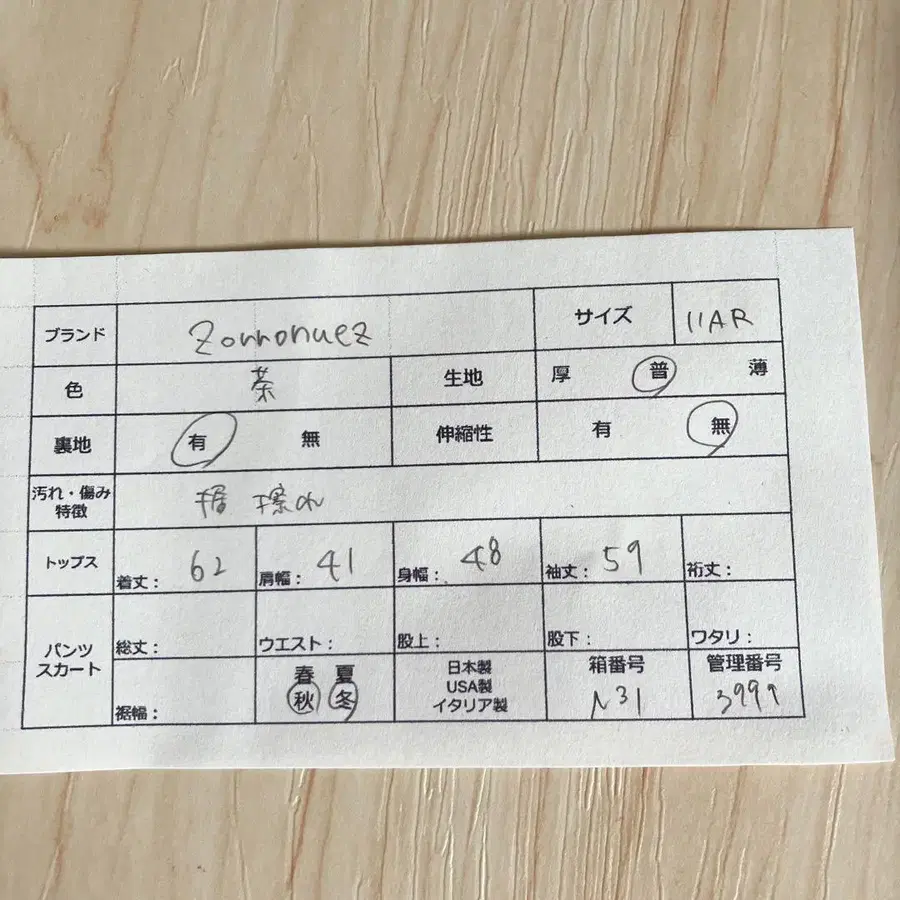 ブランド Zorronuez サイズ 11AR
色 茶 生地 厚 普 薄
裏地 有 無 伸縮性 有 無
汚れ・傷み
特徴 裾 擦れ
トップス 着丈: 62 肩幅: 41 身幅: 48 袖丈: 59 裄丈:
パンツ
スカート 総丈: ウエスト: 股上: 股下: ワタリ:
裾幅: 春 夏
秋 冬
日本製
USA製
イタリア製
箱番号
N31
管理番号